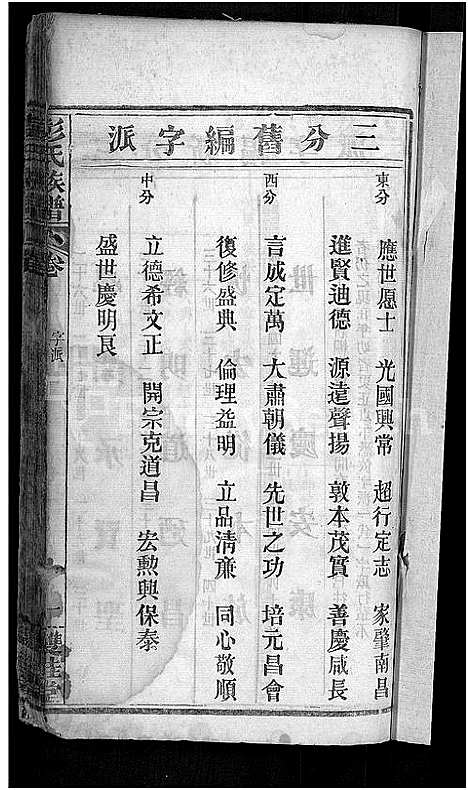 三分舊編字派
東分
應世愿士 光國興常 超行定志 家肇南昌
進賢迪德 源遠聲揚 敦本茂實 善慶咸長
西分
言成定萬 大肅朝儀 先世之功 培元昌會
復修盛典 倫理益明 立品清廉 同心敬順
中分
立德希文正 開宗克道昌 宏勲興保泰
盛世慶明良
彭氏族譜
卷
字派
一
雙桂堂